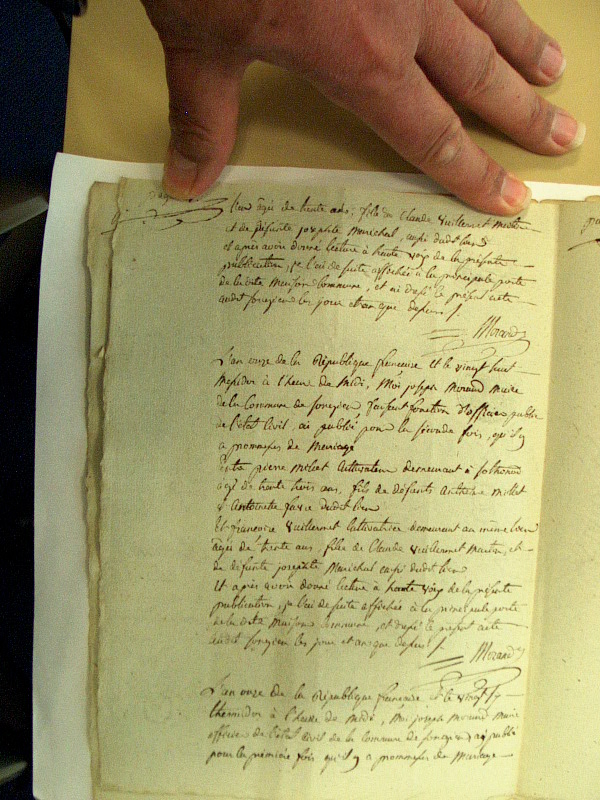 lieu agée de trente ans, fille de Claude Vuillermet Martin
et de défunte josephte Marichal, aussi dudit lieu
et après avoir donné lecture à haute voix de la présente
publication, je l'ai de suite affichée à la principale porte
de la dite Maison Commune, et ai dressé le présent acte
audit les jour et an que dessus /.
Morand
L'an onze de la République française et le vingt huit
Messidor à l'heure de Midi, Moi joseph Morand Maire
de la Commune de faisant fonction d'officier public
de l'état Civil, ai publié pour la seconde fois, qu'il y
a promesses de Mariage
Entre pierre Millet Cultivateur demeurant à
agé de trente trois ans, fils de défunts Anthelme Millet
& Antoinette dudit lieu
Et françoise Vuillermet Cultivatrice demeurant au même lieu
agée de trente ans, fille de Claude Vuillermet Martin, et
de défunte josephte Marichal aussi dudit lieu
Et après avoir donné lecture à haute voix de la présente
publication, je l'ai de suite affichée à la principale porte
de la dite Maison Commune, et dressé le présent acte
audit les jour et an que dessus /.
Morand
L'an onze de la République française et le vingt
thermidor à l'heure de Midi, Moi joseph Morand Maire
officier de l'état Civil de la Commune de ai publié
pour la première fois qu'il y a promesses de Mariage